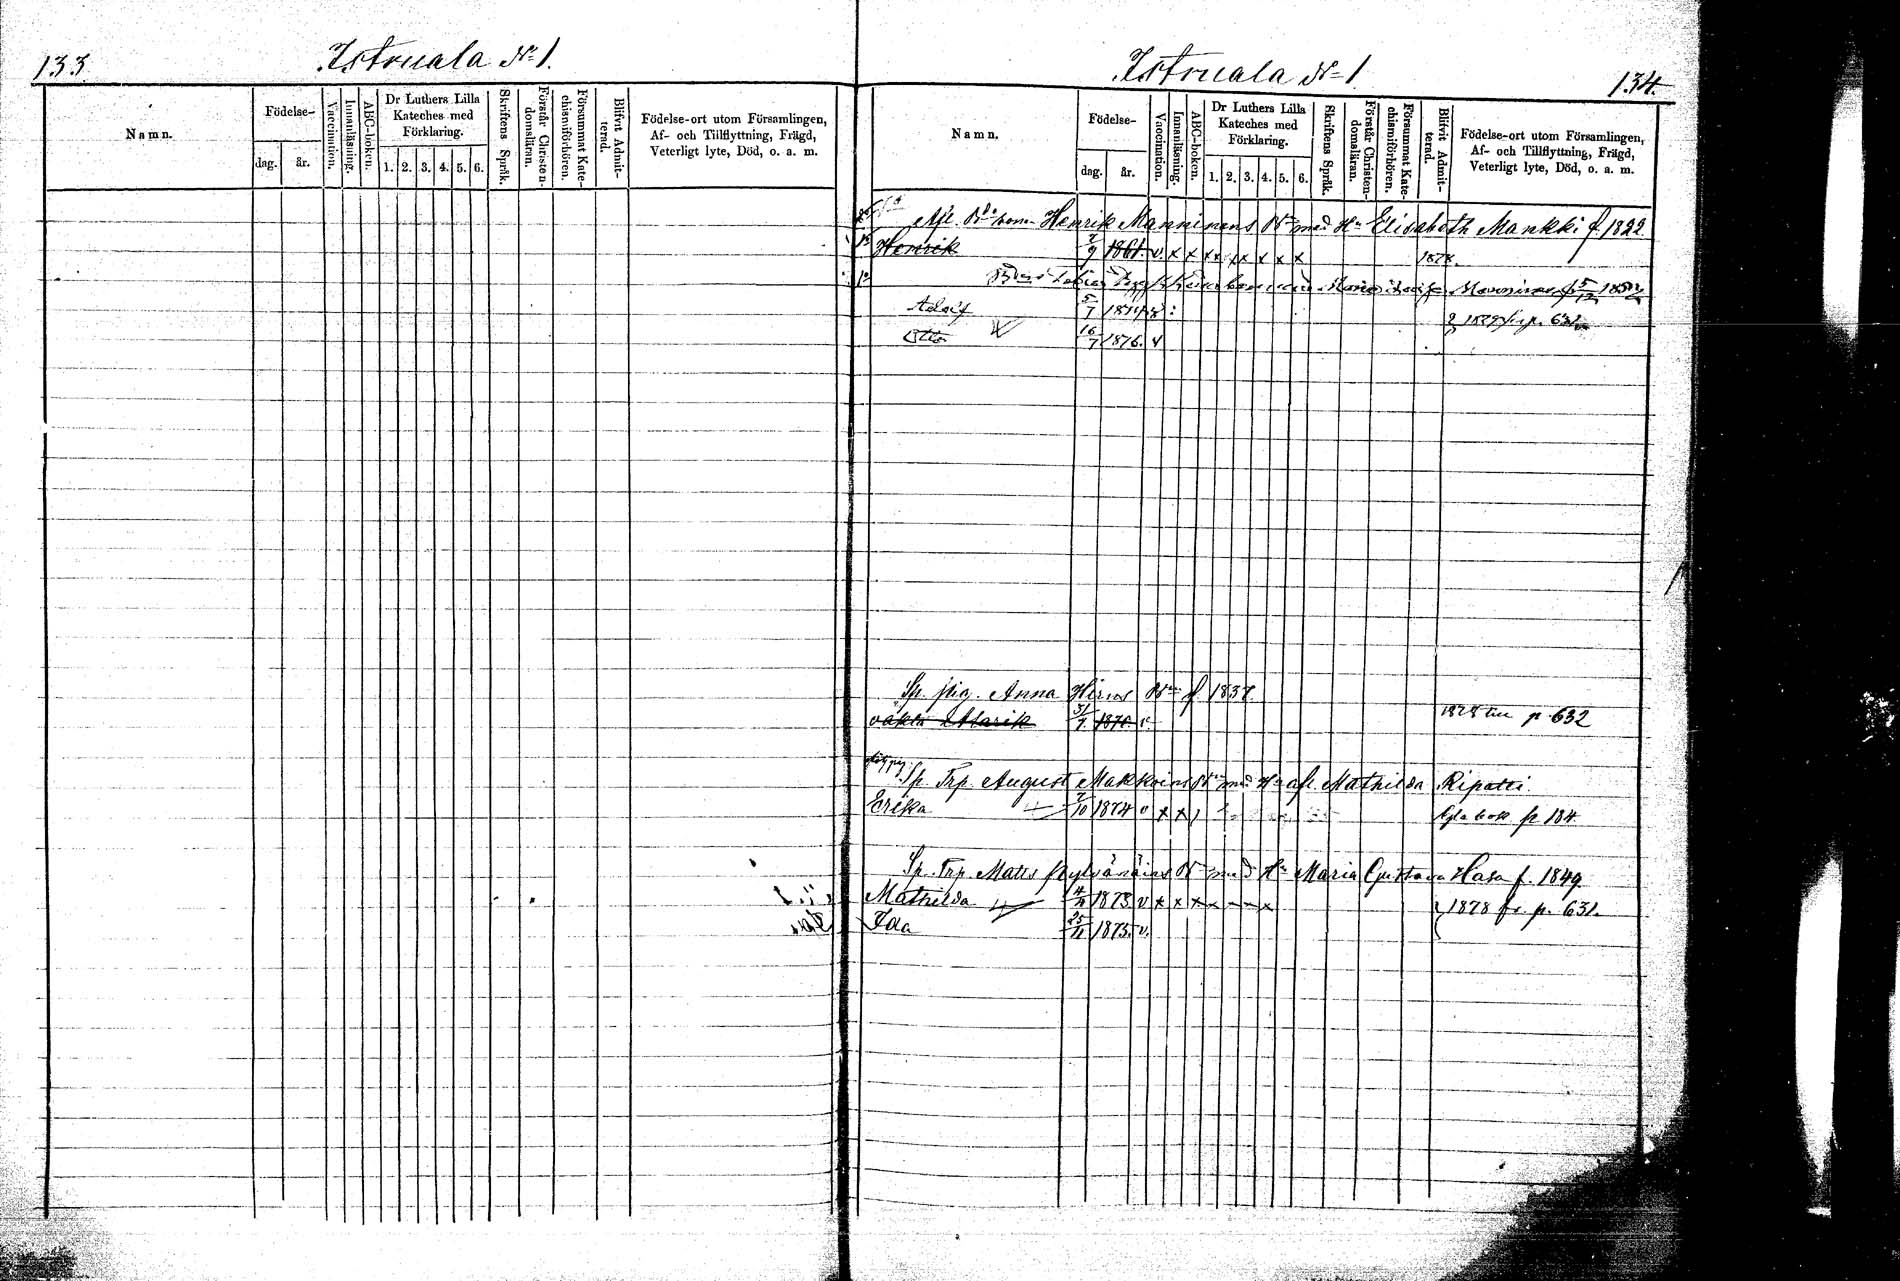 133.
Istruala No 1.
Namn.
Födelse-
dag.
år.
Vaccination.
Innanläsning.
ABC-boken.
Dr Luthers Lilla
Kateches med
Förklaring.
1. 2. 3. 4. 5. 6.
Skriftens Språk.
Förstår Christen-
domsläran.
Försummat Kate-
chismiförhören.
Blifvit Admit-
terad.
Födelse-ort utom Församlingen,
Af- och Tillflyttning, Frägd,
Veterligt lyte, Död, o. a. m.
Istruala No 1
134.
Namn.
Födelse-
dag.
år.
Vaccination.
Innanläsning.
ABC-boken.
Dr Luthers Lilla
Kateches med
Förklaring.
1. 2. 3. 4. 5. 6.
Skriftens Språk.
Förstår Christen-
domsläran.
Försummat Kate-
chismiförhören.
Blifvit Admit-
terad.
Födelse-ort utom Församlingen,
Af- och Tillflyttning, Frägd,
Veterligt lyte, Död, o. a. m.
Afl. Henrik Manninens Bn med Hu Elisabeth Mankki f. 1822
Henrik 2/9 1861. v. x x x x x x x x x 1878.
Maria Manninen f. 5/12
Adolf 5/7 1879 fr. p. 631.
Otto 16/7 1876. v
Sp. pig. Anna Hirvos Bn f 1837.
Alarik 31/7 1870. v. 1878 till p 632
Sp. Trp. August Makkoins Bn med Hu afl. Mathilda Ripatti.
Erika 7/10 1874 v x x bok p 184
Sp. Trp. Matts Pylvänäins Bn med Hu Maria Gustava Hasa f. 1849.
Mathilda 1873 v x x x x - - x } 1878 fr. p. 631.
Ida 25/11 1875. v.